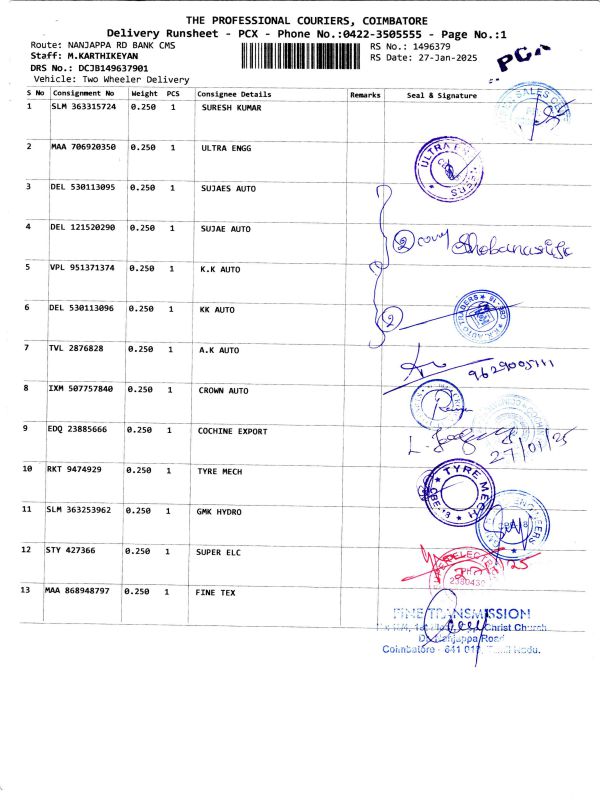 THE PROFESSIONAL COURIERS, COIMBATORE
Delivery Runsheet - PCX - Phone No.:0422-3505555 - Page No.:1
Route: NANJAPPA RD BANK CMS
Staff: M.KARTHIKEYAN
DRS No.: DCJB149637901
Vehicle: Two Wheeler Delivery
RS No.: 1496379
RS Date: 27-Jan-2025
PCX
S No Consignment No Weight PCS Consignee Details Remarks Seal & Signature
1 SLM 363315724 0.250 1 SURESH KUMAR
2 MAA 706920350 0.250 1 ULTRA ENGG
3 DEL 530113095 0.250 1 SUJAES AUTO
4 DEL 121520290 0.250 1 SUJAE AUTO
2
5 VPL 951371374 0.250 1 K.K AUTO
6 DEL 530113096 0.250 1 KK AUTO
2
7 TVL 2876828 0.250 1 A.K AUTO
9629005111
8 IXM 507757840 0.250 1 CROWN AUTO
9 EDQ 23885666 0.250 1 COCHINE EXPORT
27/01/25
10 RKT 9474929 0.250 1 TYRE MECH
TYRE MECH
CBE-18
11 SLM 363253962 0.250 1 GMK HYDRO
12 STY 427366 0.250 1 SUPER ELC
13 MAA 868948797 0.250 1 FINE TEX
FINE TRANSMISSION
Christ Church
Nanjappa Road
Coimbatore - 641 018, Tamil Nadu.